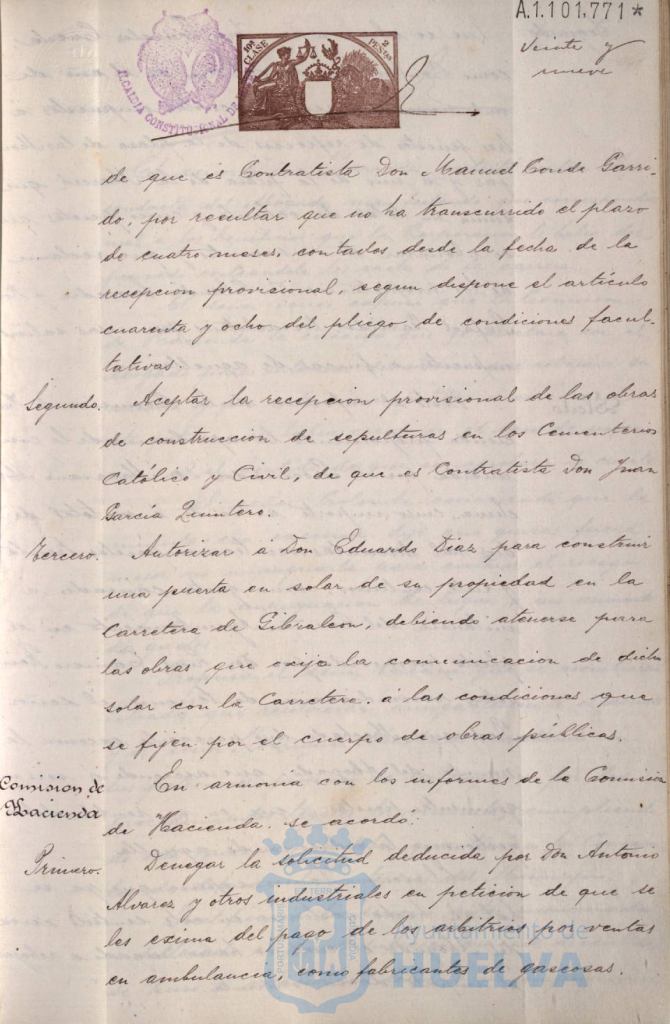 A.1.101,771*
Veinte y
nueve
ALCALDIA CONSTITUCIONAL DE
10ª CLASE
2 PESETAS
de que es Contratista Don Manuel Conde Garri-
do, por resultar que no ha transcurrido el plazo
de cuatro meses, contados desde la fecha de la
recepcion provisional, segun dispone el artículo
cuarenta y ocho del pliego de condiciones facul-
tativas.
Segundo. Aceptar la recepcion provisional de las obras
de construccion de sepulturas en los Cementerios
Católico y Civil, de que es Contratista Don Juan
García Quintero.
Tercero. Autorizar á Don Eduardo Diaz para construir
una puerta en solar de su propiedad en la
Carretera de Gibraleon, debiendo atenerse para
las obras que exija la comunicacion de dicho
solar con la Carretera, á las condiciones que
se fijen por el cuerpo de obras públicas.
Comision de
Hacienda
En armonia con los informes de la Comision
de Hacienda se acordó:
Primero. Denegar la solicitud deducida por Don Antonio
Alvarez y otros industriales en peticion de que se
les exima del pago de los arbitrios por ventas
en ambulancia, como fabricantes de gaseosas.
Ayuntamiento de
HUELVA